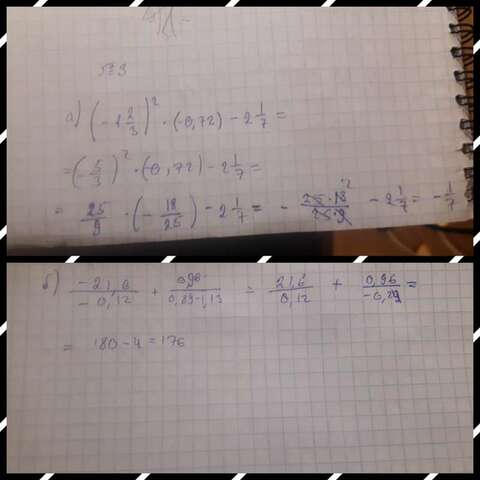 №3
а) (-1 2/3)² · (-0,72) - 2 1/7 =
= (-5/3)² · (-0,72) - 2 1/7 =
= 25/9 · (-18/25) - 2 1/7 = - 25·18/25·9 ² - 2 1/7 = - 1/7
б) -21,6/-0,12 + 0,96/0,89-1,13 = 21,6/0,12 + 0,96/-0,24 =
= 180 - 4 = 176